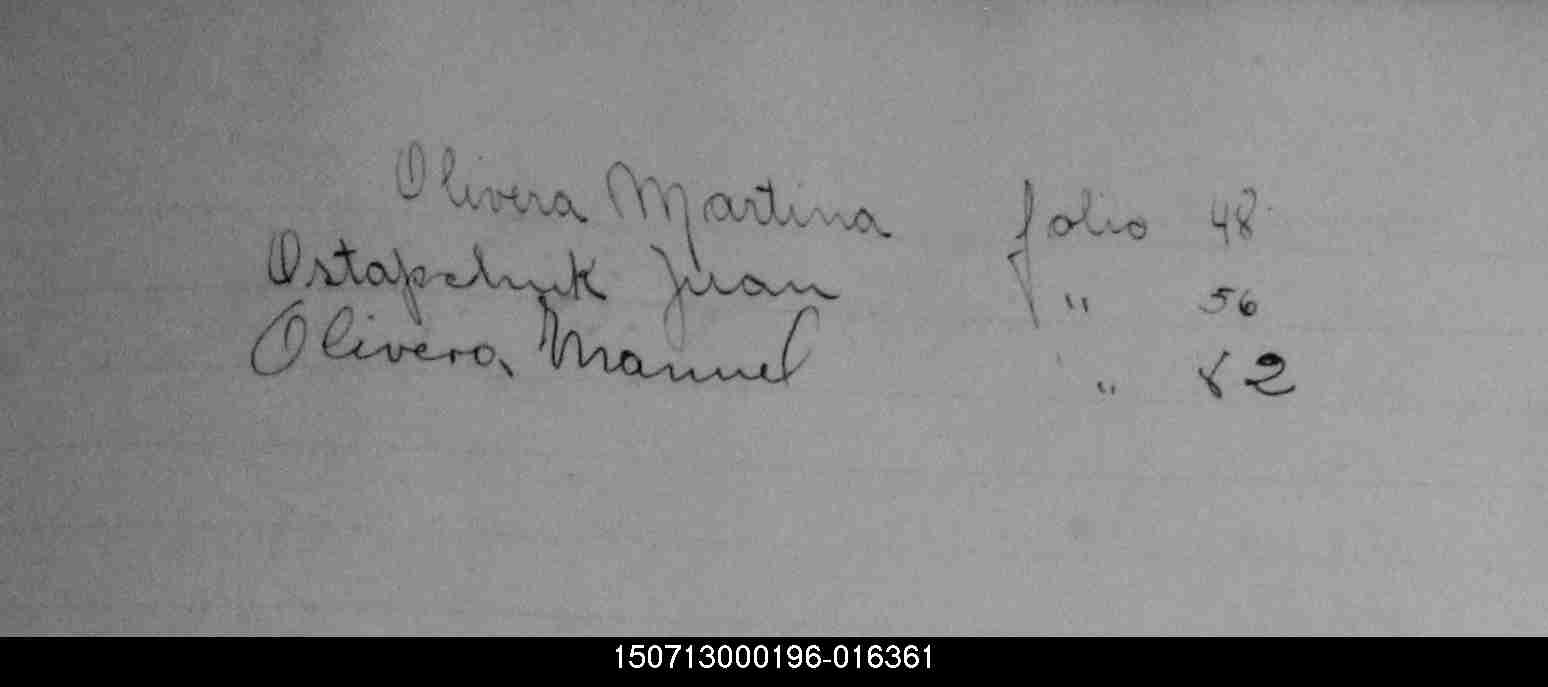 Olivera Martina folio 48
Ostapchuk Juan " 56
Olivera, Manuel " 82
150713000196-016361